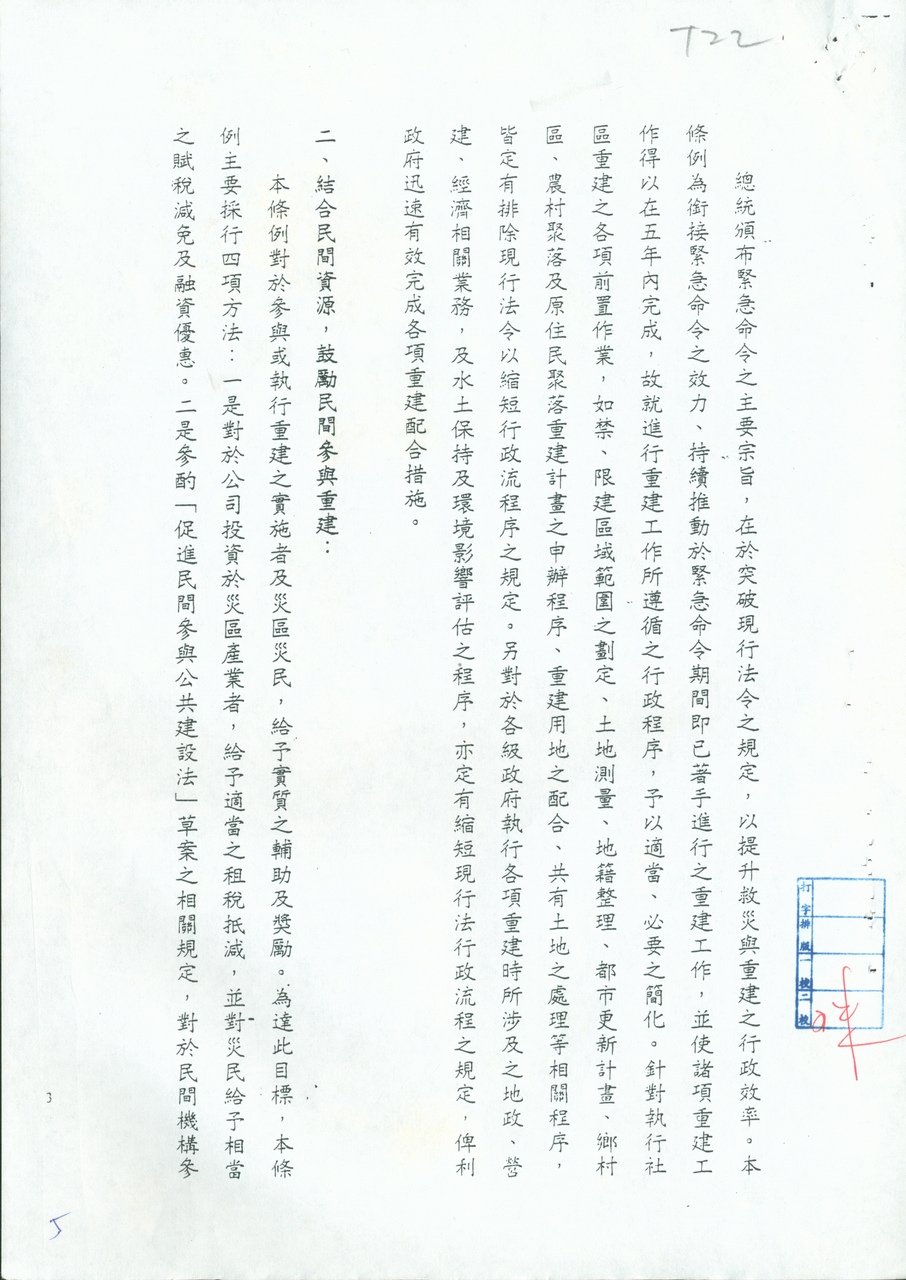 T22
總統頒布緊急命令之主要宗旨，在於突破現行法令之規定，以提升救災與重建之行政效率。本
條例為銜接緊急命令之效力、持續推動於緊急命令期間即已著手進行之重建工作，並使諸項重建工
作得以在五年內完成，故就進行重建工作所遵循之行政程序，予以適當、必要之簡化。針對執行社
區重建之各項前置作業，如禁、限建區域範圍之劃定、土地測量、地籍整理、都市更新計畫、鄉村
區、農村聚落及原住民聚落重建計畫之申辦程序、重建用地之配合、共有土地之處理等相關程序，
皆定有排除現行法令以縮短行政流程序之規定。另對於各級政府執行各項重建時所涉及之地政、營
建、經濟相關業務，及水土保持及環境影響評估之程序，亦定有縮短現行法行政流程之規定，俾利
政府迅速有效完成各項重建配合措施。
二、結合民間資源，鼓勵民間參與重建：
本條例對於參與或執行重建之實施者及災區災民，給予實質之輔助及獎勵。為達此目標，本條
例主要採行四項方法：一是對於公司投資於災區產業者，給予適當之租稅抵減，並對災民給予相當
之賦稅減免及融資優惠。二是參酌「促進民間參與公共建設法」草案之相關規定，對於民間機構參
打字排版一校二校
3
5